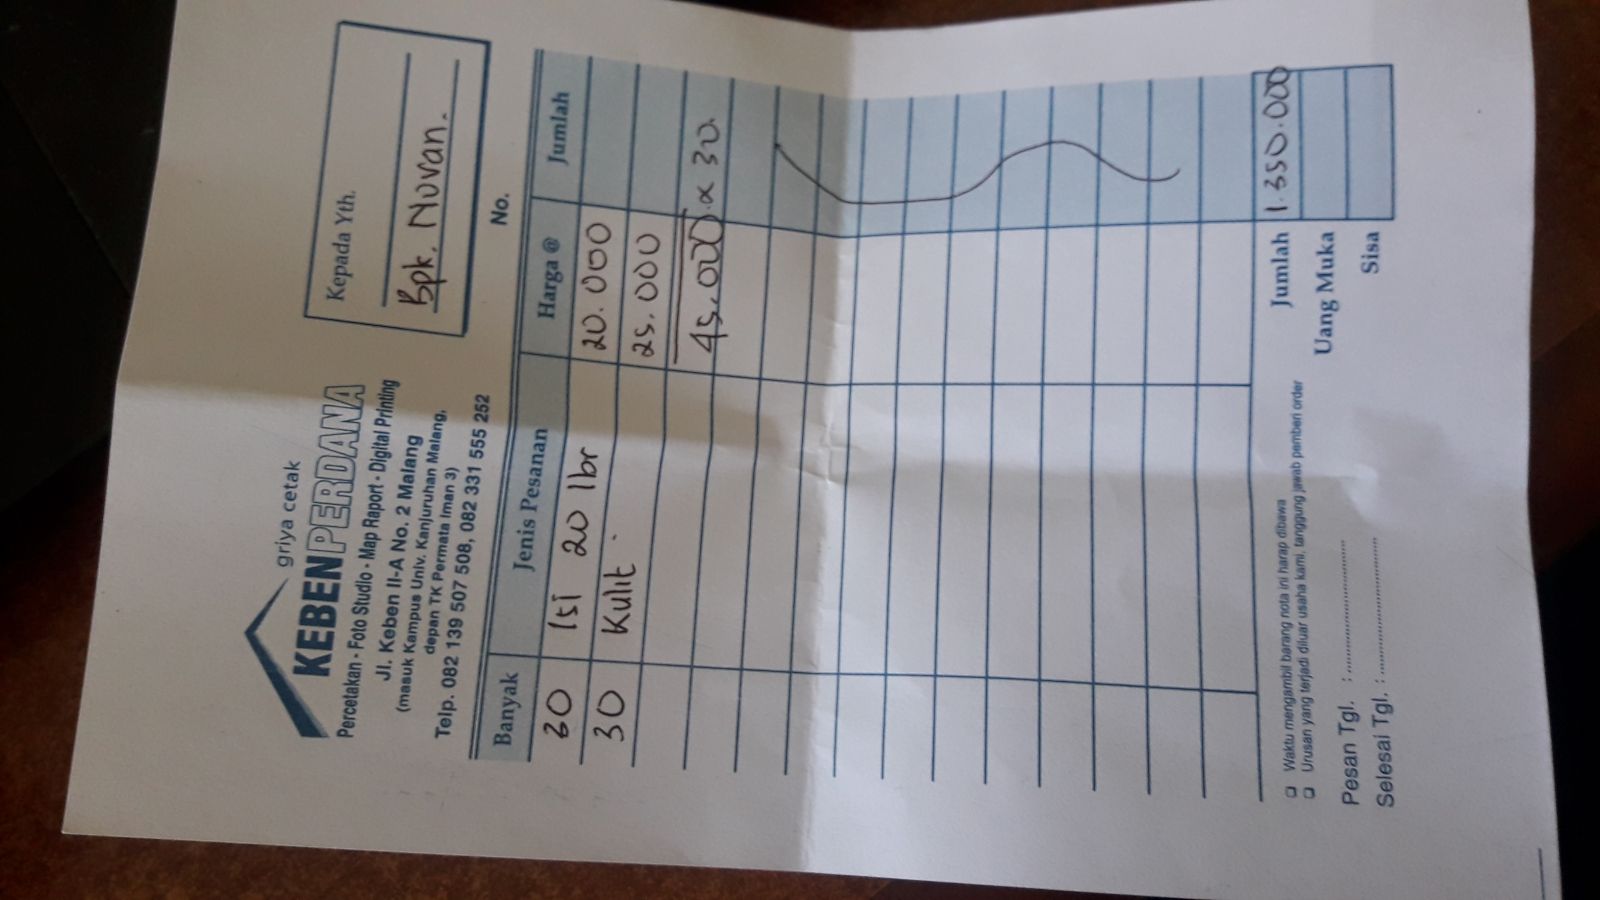 griya cetak
KEBENPERDANA
Percetakan - Foto Studio - Map Raport - Digital Printing
Jl. Keben II-A No. 2 Malang
(masuk Kampus Univ. Kanjuruhan Malang,
depan TK Permata Iman 3)
Telp. 082 139 507 508, 082 331 555 252
Kepada Yth.
Bpk. Novan.
No.
Banyak Jenis Pesanan Harga @ Jumlah
30 Isi 20 lbr 20.000
30 Kulit. 25.000
45.000 x 30.
Jumlah 1.350.000
Uang Muka
Sisa
Waktu mengambil barang nota ini harap dibawa
Urusan yang terjadi diluar usaha kami, tanggung jawab pemberi order
Pesan Tgl. : ........................
Selesai Tgl. : ........................